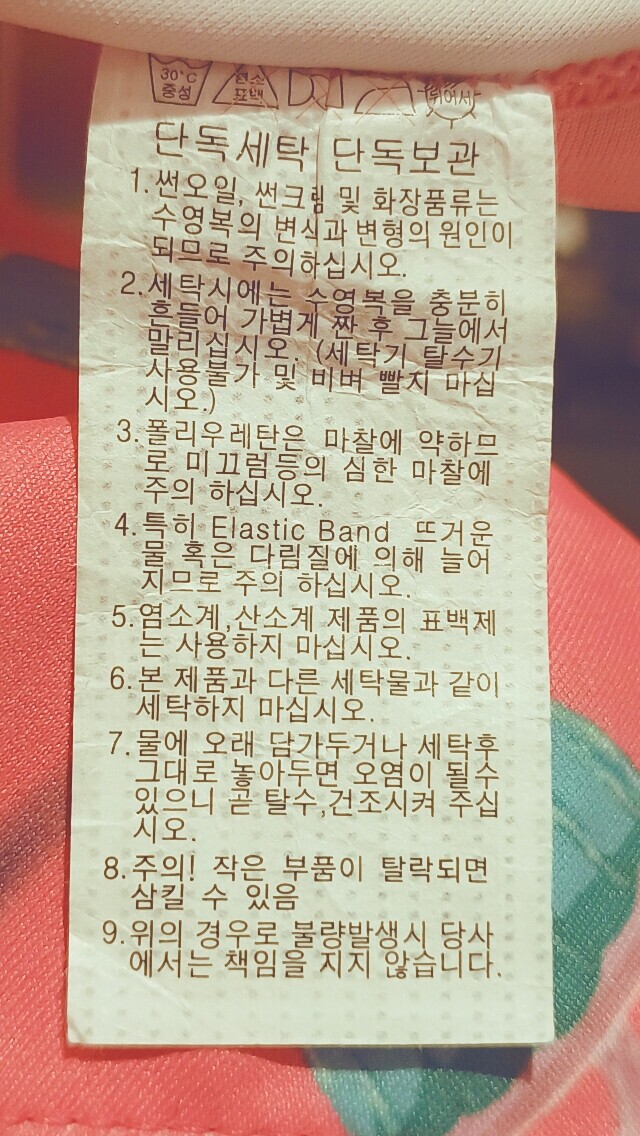 30°C
중성
염소
표백
뉘어서
단독세탁 단독보관
1.썬오일, 썬크림 및 화장품류는
수영복의 변식과 변형의 원인이
되므로 주의하십시오.
2.세탁시에는 수영복을 충분히
흔들어 가볍게 짠 후 그늘에서
말리십시오. (세탁기 탈수기
사용불가 및 비벼 빨지 마십
시오.)
3.폴리우레탄은 마찰에 약하므
로 미끄럼등의 심한 마찰에
주의 하십시오.
4.특히 Elastic Band 뜨거운
물 혹은 다림질에 의해 늘어
지므로 주의 하십시오.
5.염소계,산소계 제품의 표백제
는 사용하지 마십시오.
6.본 제품과 다른 세탁물과 같이
세탁하지 마십시오.
7.물에 오래 담가두거나 세탁후
그대로 놓아두면 오염이 될수
있으니 곧 탈수,건조시켜 주십
시오.
8.주의! 작은 부품이 탈락되면
삼킬 수 있음
9.위의 경우로 불량발생시 당사
에서는 책임을 지지 않습니다.